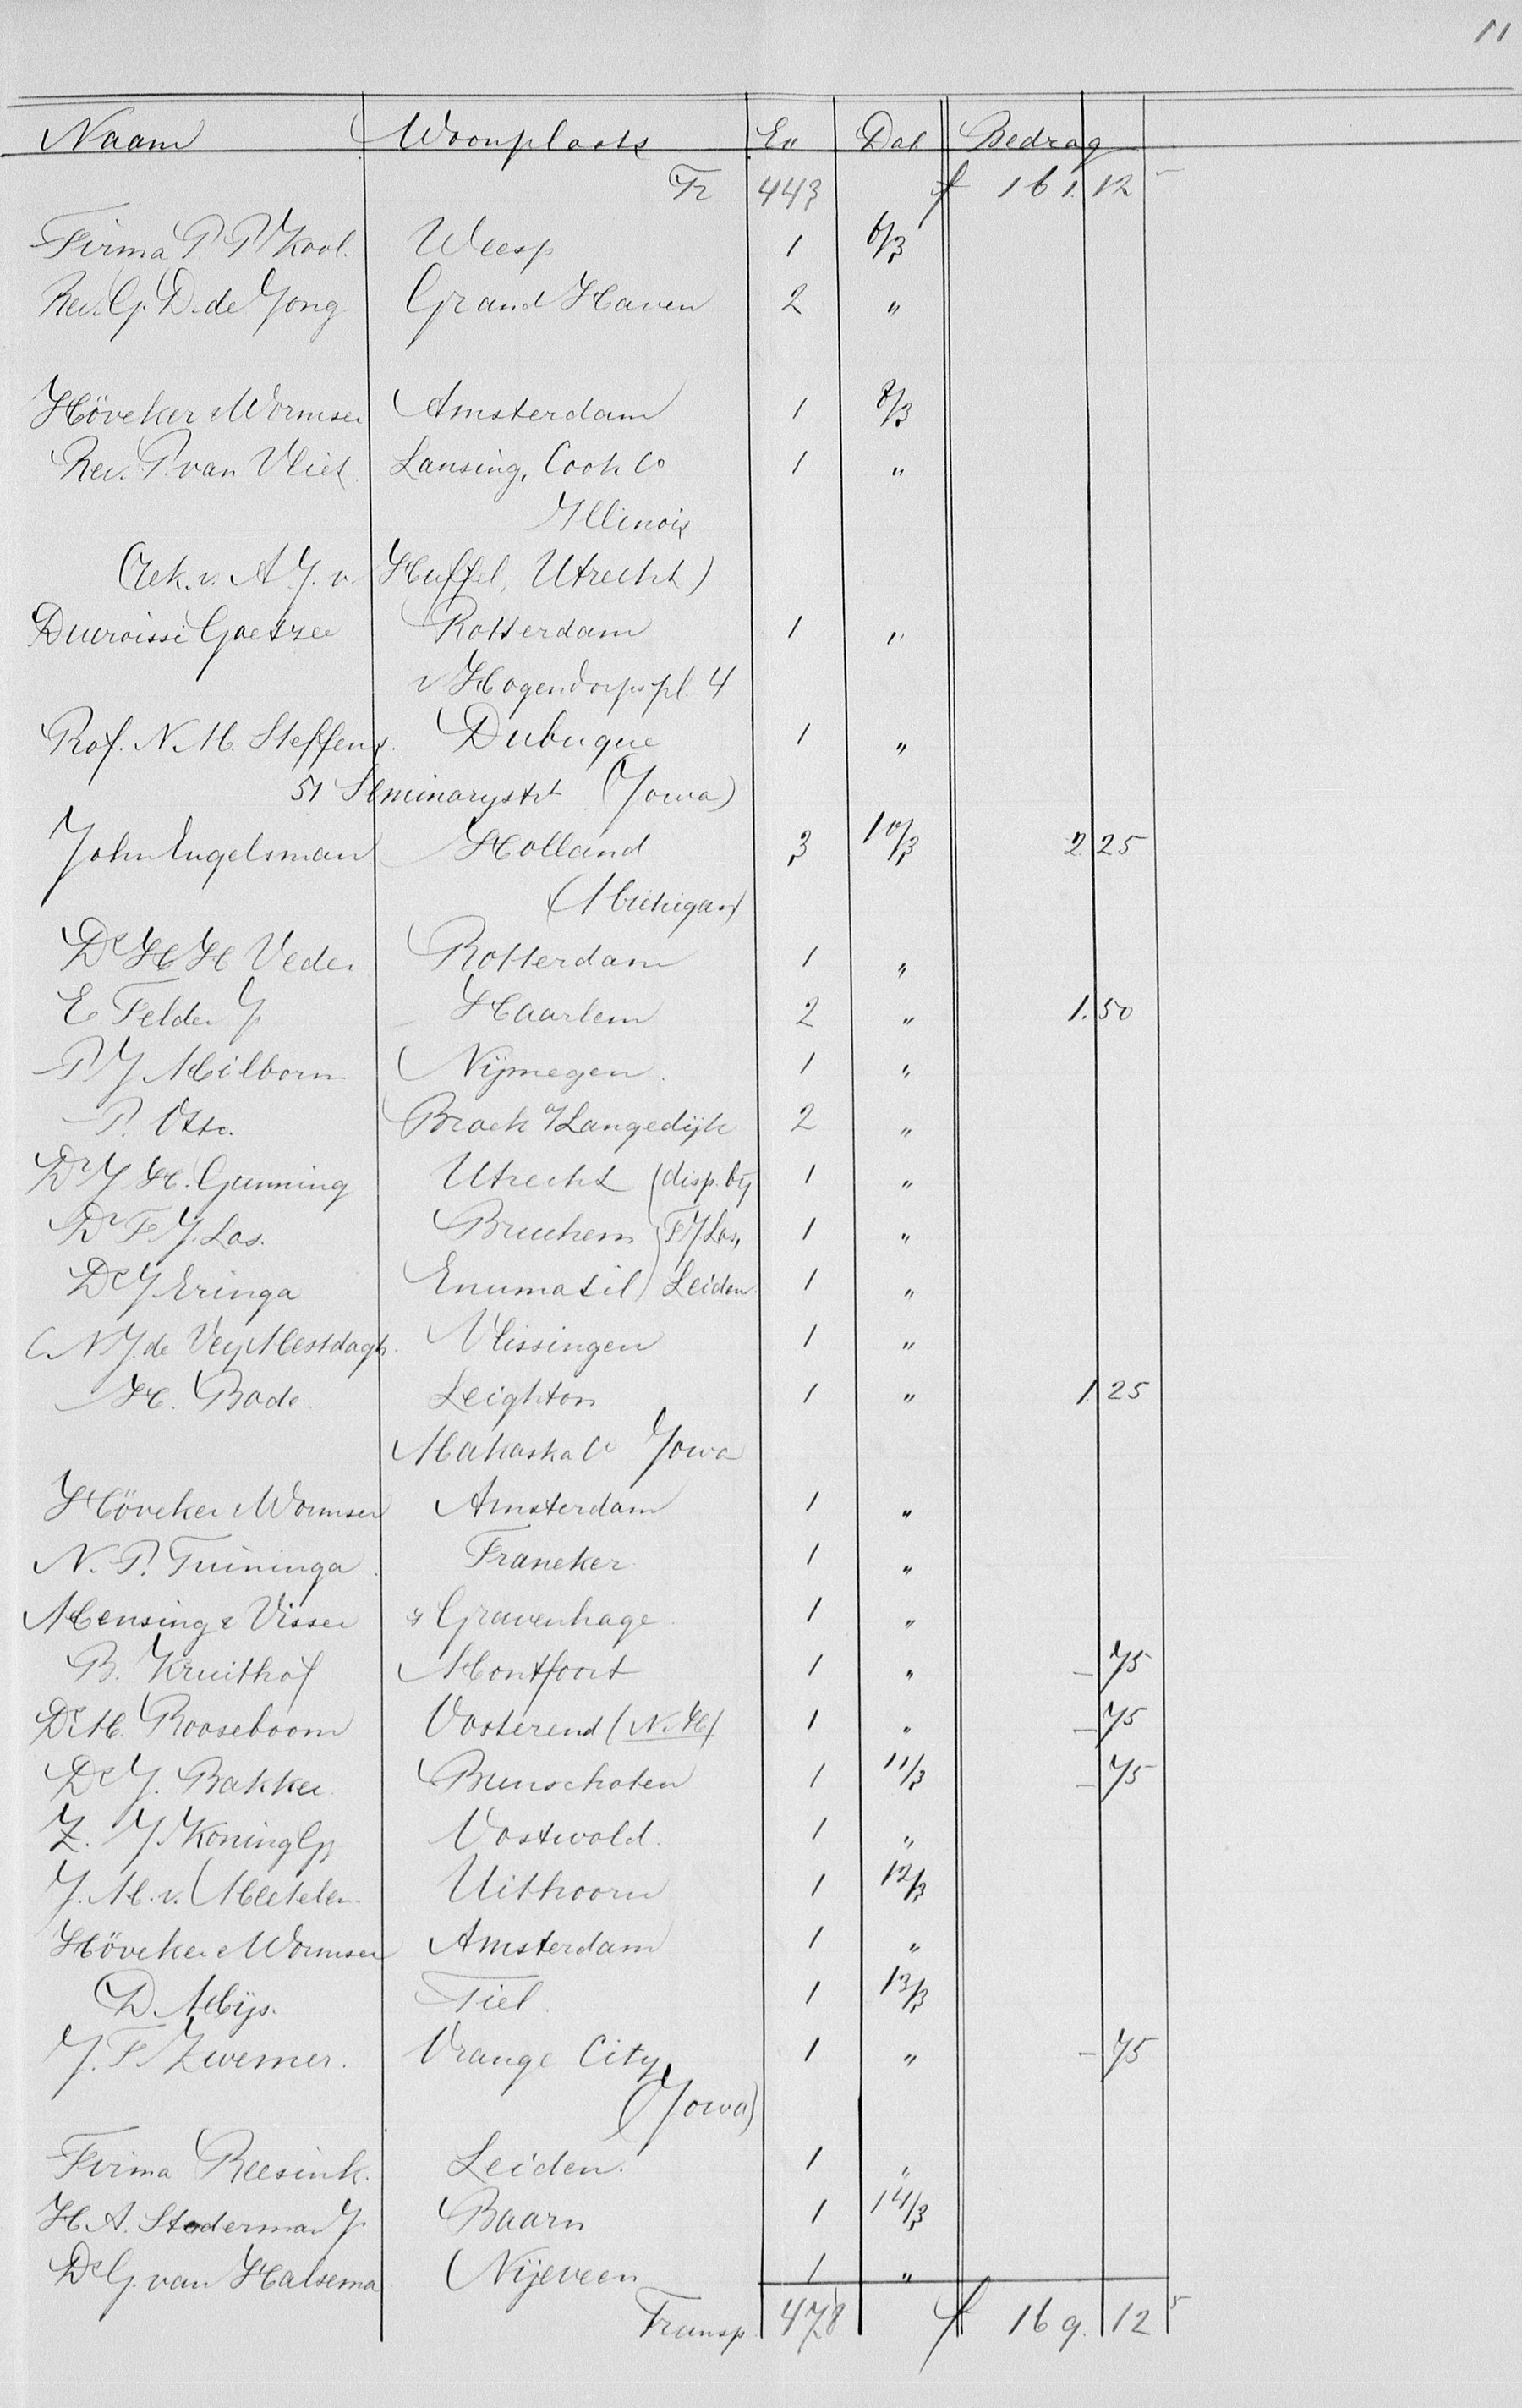 11
Naam Woonplaats Ex Dat Bedrag
Tr 443 f 161.12⁵
Firma P P Kool. Weesp 1 6/3
Rev. G. D. de Jong Grand Haven 2 "
Höveker & Wormser Amsterdam 1 8/3
Rev. P. van Vliet. Lansing, Cook Co 1 "
Illinois
(Rek. v. A.J. v. Huffel, Utrecht)
Ducroissi Goetzee Rotterdam 1 "
v Hogendorpspl. 4
Prof. N. M. Steffens. Dubuque 1 "
51 Seminarystrt (Jowa)
John Engelsman Holland 3 10/3 2.25
(Michigan)
Ds H H Veder Rotterdam 1 "
E. Felder Jr Haarlem 2 " 1.50
P J Milborn Nijmegen. 1 "
P. Otto. Broek o/Langedijk 2 "
Dr J H. Gunning Utrecht (disp. bij 1 "
Dr F J. Los. Bruchem F J Los, 1 "
Ds J Eringa Enumatil) Leiden. 1 "
(N J. de Vey Mestdagh. Vlissingen 1 "
H. Bode. Leighton 1 " 1.25
Mahaska Co Jowa
Höveker & Wormser Amsterdam 1 "
N. P. Tuininga. Franeker. 1 "
Mensing & Visser 's Gravenhage. 1 "
B. Kruithof Montfoort 1 " – 75
Ds M. Rooseboom Oosterend (N. H) 1 " – 75
Ds J. Bakker Bunschoten 1 11/3 – 75
Z. J. Koning Gz Oostwold. 1 "
J. M. v. Meetelen Uithoorn 1 12/3
Höveker & Wormser Amsterdam 1 "
D. Mijs. Tiel. 1 13/3
J. F. Zwemer. Orange City 1 " – 75
(Jowa)
Firma Reesink. Leiden. 1 "
H. A. Stoderman Jr Baarn 1 14/3
Ds G. van Halsema Nijeveen 1 "
Transp. 478 f 169.12⁵